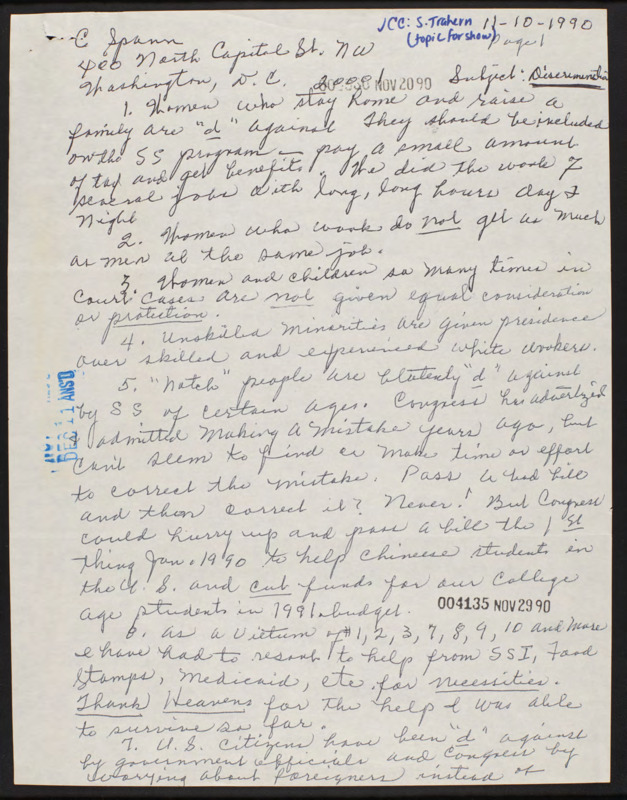 JCC: S. Trahern 11-10-1990
(topic for show) Page 1
C Spann
400 North Capitol St. NW
Washington, D.C. 20001 Subject: Discrimination
NOV 20 90
1. Women who stay home and raise a
family are "d" against They should be included
on the SS program — pay a small amount
of tax and get benefits. We did the work of
several jobs with long, long hours day &
night
2. Women who work do not get as much
as men at the same job.
3. Women and children so many times in
court cases are not given equal consideration
or protection.
4. Unskilled minorities are given presidence
over skilled and experienced white workers.
5. "Notch" people are blatenly "d" against
by SS of certain ages. Congress has advertized
& admitted making a mistake years ago, but
can't seem to find or make time or effort
to correct the mistake. Pass a bad bill
and then correct it? Never! But Congress
could hurry up and pass a bill the 1st
thing Jan. 1990 to help Chineese students in
the U.S. and cut funds for our College
age students in 1991 budget.
004135 NOV 29 90
DEC 11 ANS'D
6. As a victum of #1, 2, 3, 7, 8, 9, 10 and more
I have had to resort to help from SSI, Food
Stamps, Medicaid, etc. for necessities.
Thank Heavens for the help I was able
to survive so far.
7. U.S. Citizens have been "d" against
by government officials and Congress by
worrying about foreigners instead of